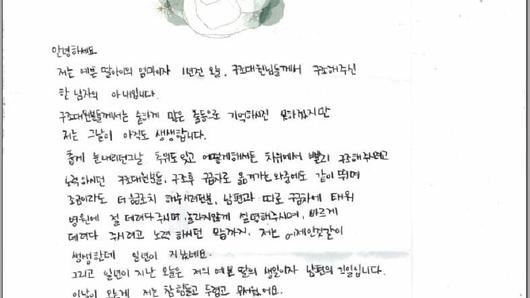 안녕하세요
저는 예쁜 딸아이의 엄마이자 1년전 오늘, 구조대원님들께서 구조해주신
한 남자의 아내입니다.
구조대원분들께서는 숱하게 많은 출동으로 기억하시진 못하겠지만
저는 그날이 아직도 생생합니다.
춥게 눈내리던그날 추위도 잊고 어떻게해서든 차위에서 빨리 구조해주시려고
노력하시던 구조대원분들, 구조후 구급차로 옮겨가는와중에도 같이 뛰며
조금이라도 더 해주시려던분, 남편과 따로 구급차에 태워
병원에 절 데려다 주시며, 놀라지않게 설명해주시며, 빠르게
데려다 주시려고 노력 하시던 맘까지, 저는 어제일같이
생생한데 일년이 지났네요.
그리고 일년이 지난 오늘은 저의 예쁜 딸의 생일이자 남편의 기일입니다.
이날이 오는게 저는 참힘들고 두렵고 무서웠어요.